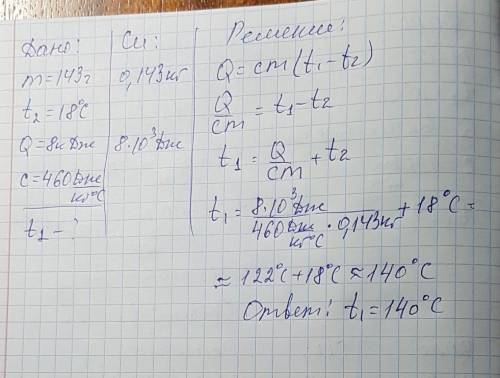 Дано:
m=143г
t₂=18°C
Q=8кДж
c=460 Дж/кг°C
t₁-?
Си:
0,143кг
8·10³Дж
Решение:
Q=cm(t₁-t₂)
Q/cm=t₁-t₂
t₁=Q/cm+t₂
t₁=8·10³Дж/460 Дж/кг°C·0,143кг+18°C=
≈122°C+18°C≈140°C
Ответ: t₁=140°C